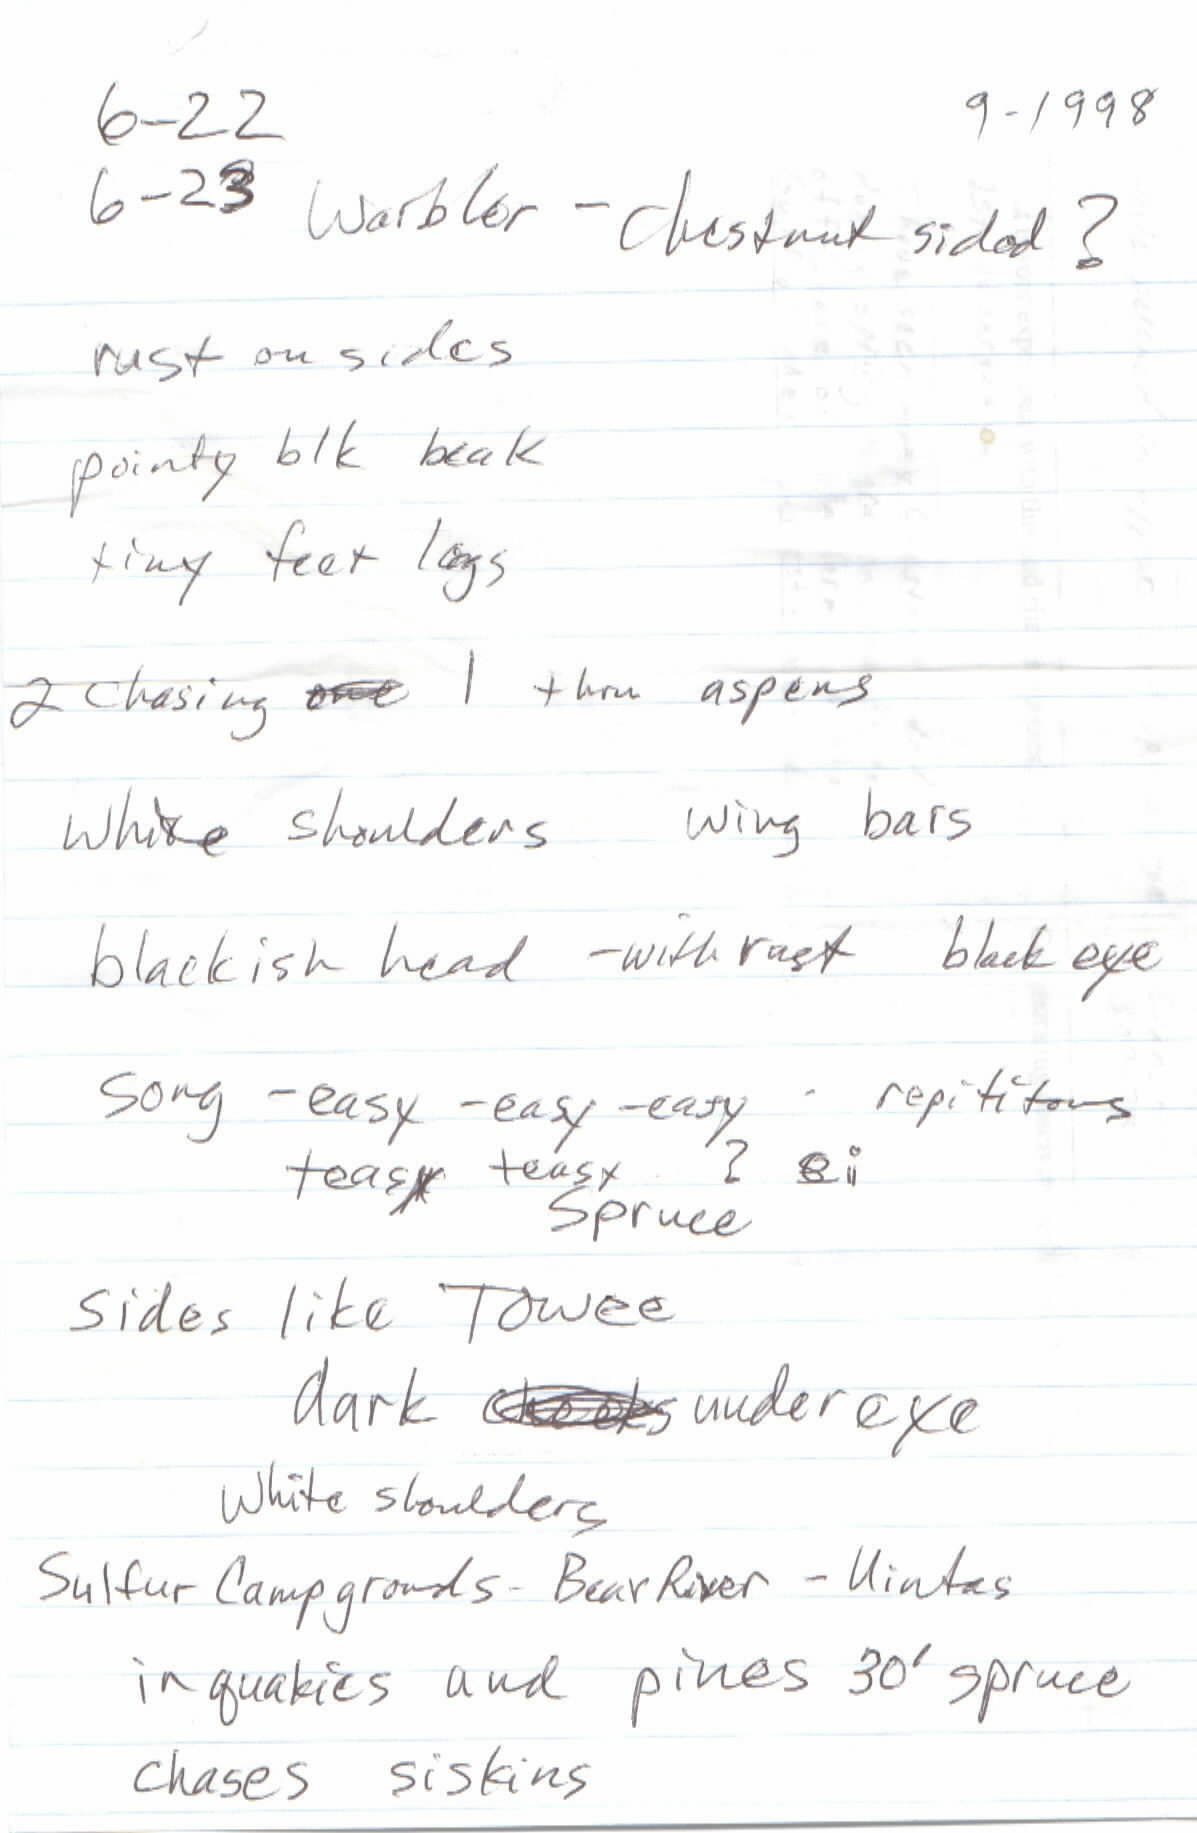 6-22 9-1998
6-23 Warbler - Chestnut sided?
rust on sides
pointy blk beak
tiny feet legs
2 chasing one 1 thru aspens
White shoulders wing bars
blackish head - with rust black eye
Song - easy - easy - easy - repititous
teasy teasy ?
Spruce
Sides like Towee
dark cheeks under eye
White shoulders
Sulfur Campgrounds - Bear River - Uintas
in quakies and pines 30' spruce
chases siskins